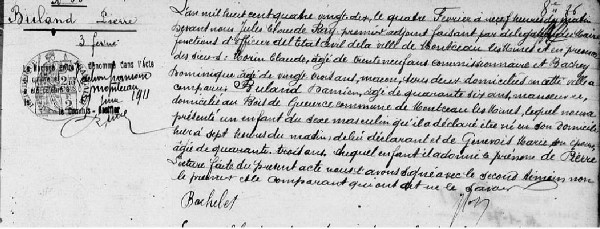 Buland Pierre
3 février
L'an mil huit cent quatre vingt dix, le quatre Février à neuf heures du matin
devant nous Jules Claude Rey premier adjoint faisant par délégation du Maire
fonctions d'Officier de l'Etat Civil de la ville de Montceau les Mines et en présence
des sieurs Morin Claude, âgé de trente neuf ans commissionnaire et Bachey
Dominique âgé de vingt trois ans, maçon, tous deux domiciliés en cette ville a
comparu Buland Damien, âgé de quarante six ans, manœuvre
domicilié au Bois de commune de Montceau les Mines, lequel nous a
présenté un enfant du sexe masculin qu'il a déclaré être né en son domicile
hier à sept heures du matin; de lui déclarant et de Genevois Marie son épouse
âgée de quarante trois ans. Auquel enfant il a donné le prénom de Pierre
Lecture faite du présent acte nous l'avons signé avec le second témoin non
le premier et le comparant qui ont dit ne le savoir
Bachelet
1911